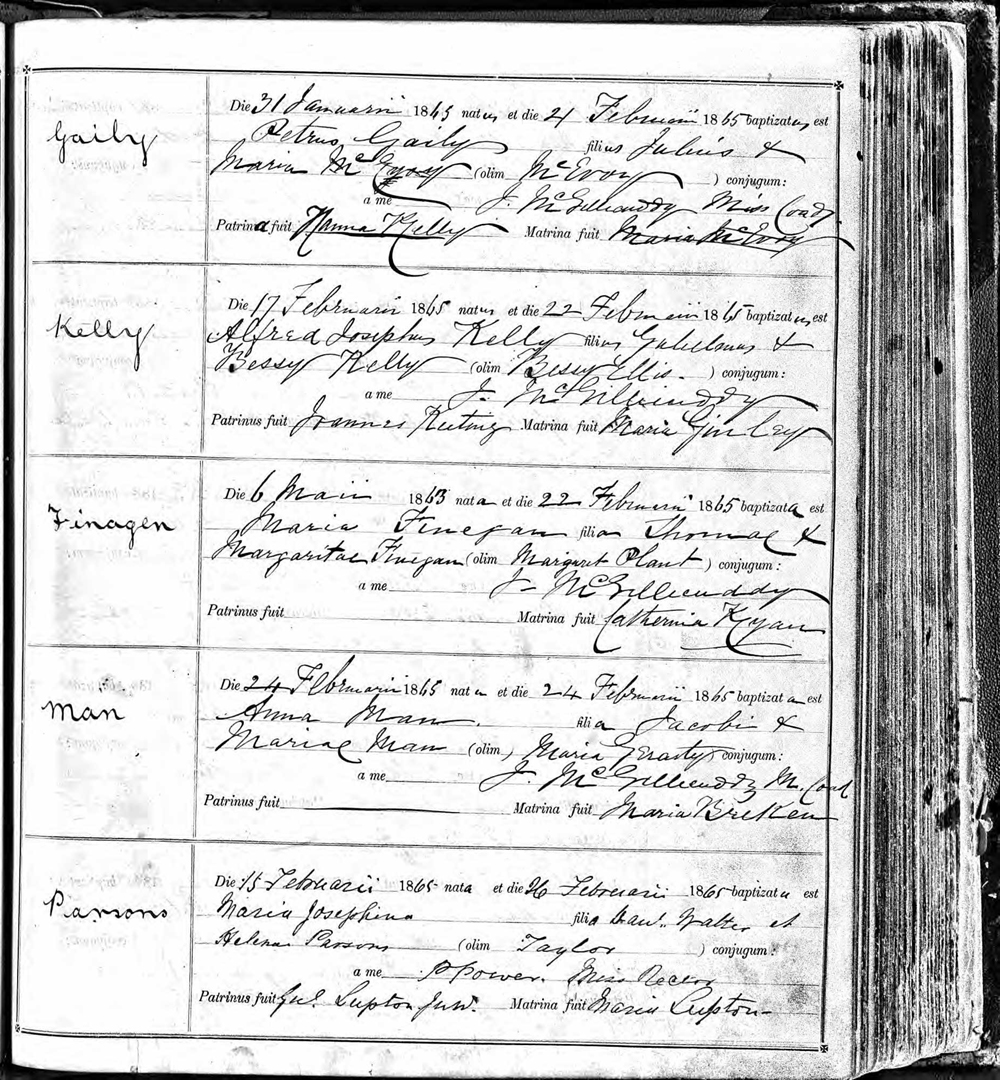 Gaily
Die 31 Januarii 1865 natus et die 21 Februarii 1865 baptizatus est
Petrus Gaily filius Julius &
Maria McEvoy (olim McEvoy) conjugum:
a me J. McGillicuddy Miss Coad.
Patrina fuit Hanna Kelly Matrina fuit Maria McEvoy
Kelly
Die 17 Februarii 1865 natus et die 22 Februarii 1865 baptizatus est
Alfred Josephus Kelly filius Gulielmus &
Bessy Kelly (olim Bessy Ellis.) conjugum:
a me J. McGillicuddy
Patrinus fuit Joannes Keting Matrina fuit Maria
Finagen
Die 6 Maii 1863 nata et die 22 Februarii 1865 baptizata est
Maria Finegan filia Thomae &
Margaritae Finegan (olim Margaret Plant) conjugum:
a me J. McGillicuddy
Patrinus fuit Matrina fuit Catherina Ryan
Man
Die 24 Februarii 1865 nata et die 24 Februarii 1865 baptizata est
Anna Man. filia Jacobi &
Mariae Man (olim) Maria conjugum:
a me J. McGillicuddy M. Coad
Patrinus fuit Matrina fuit Maria Breken
Parsons
Die 15 Februarii 1865 nata et die 26 Februarii 1865 baptizata est
Maria Josephina filia Walter et
Helena Parsons (olim Taylor) conjugum:
a me P Power. Miss Rector
Patrinus fuit Gul. Lupton Jun. Matrina fuit Maria Lupton